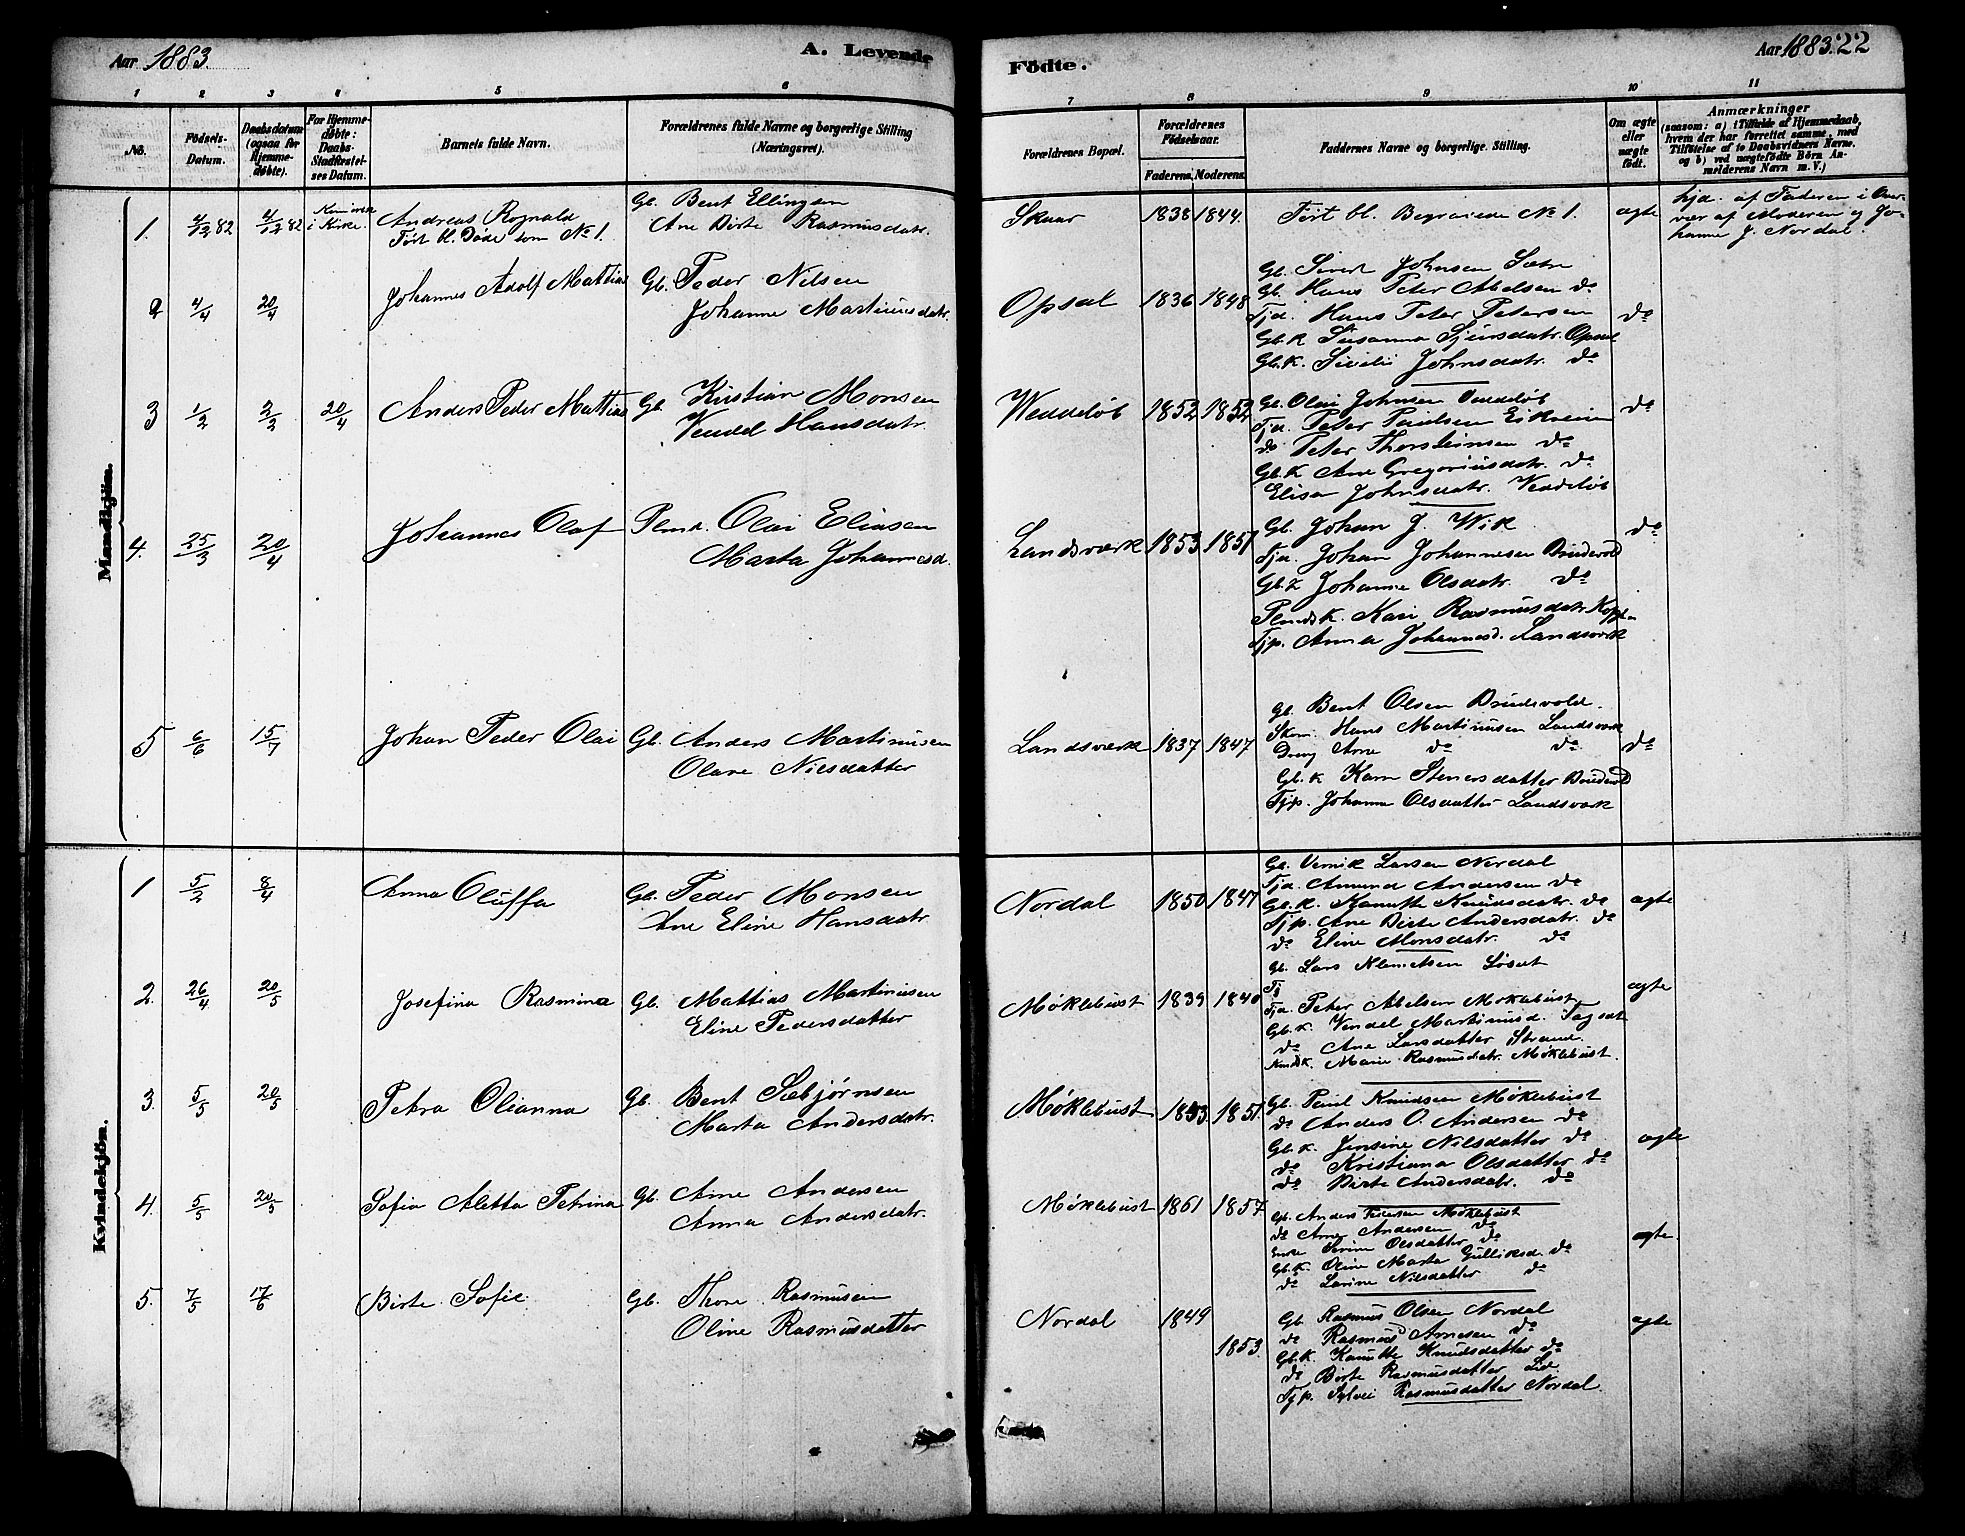 Aar 1883.
A. Levende
Födte.
Aar 1883. 22
1 2 3 4 5 6 7 8 9 10 11
No.
Födsels-
Datum.
Daabsdatum
(ogsaa for
Hjemme-
døbte).
For Hjemme-
døbte:
Daabs-
Stadfæstel-
ses Datum.
Barnets fulde Navn.
Forældrenes fulde Navne og borgerlige Stilling
(Næringsvei).
Forældrenes Bopæl.
Forældrenes
Födselsaar.
Faderens. Moderens.
Faddernes Navne og borgerlige Stilling.
Om ægte
eller
uægte
født.
Anmærkninger
(saasom: a) i Tilfælde af Hjemmedaab,
hvem der har forrettet samme, med
Tilföielse af to Daabsvidners Navne,
og b) ved uægtefödte Börn An-
melderens Navn m. V.)
Mandkjön.
1. 4/12 82 4/12 82 i Kirke. Andreas Rognald
Ført bl. Døde som No 1.
Gb. Bent Ellingsen
Ane Birte Rasmusdatr.
Skaar 1838 1844. Ført bl. Begravede No 1. ægte
hjd. af Faderen i Over-
vær af Moderen og Jo-
hanne J. Nordal.
2 4/4 20/4 Johannes Adolf Mattias
Gb. Peder Nilsen
Johanne Martinusdatr.
Opsal 1836 1848
Gb. Sivert Johnsen Sætre
Gb. Hans Peter Abelsen do
Tjd. Hans Peter Petersen
Gb. K Susanna Sjursdatr. Opsal
Gb. K. Sivilie Johnsdatr. do
do
3 1/2 2/2 20/4 Anders Peder Mattias
Gb. Kristian Monsen
Vendel Hansdatr.
Weddeløb 1852 1852
Gb. Olai Johnsen Veddeløb
Tjd. Peter Paulsen Eikreim
do Peter Thorsteinsen do
Gb. K Ane Gregoriusdatr. do
Elisa Johnsdatr. Veddeløb
do
4. 25/3 20/4 Johannes Olaf
Olai Eliasen
Marta Johannesd.
Landsværk 1853 1851
Gb. Johan J. Wik
Tjd. Johan Johannesen Brudevold
Gb. K Johanne Olsdatr. do
Kari Rasmusdatr.
Tjp. Anna Johannesd. Landsværk
do
5 6/6 15/7 Johan Peder Olai
Gb. Anders Martinusen
Olave Nilsdatter
Landsværk 1837 1847
Gb. Bent Olsen Brudevold.
Skom. Hans Martinusen Landsværk
Dreng Arne do do
Gb. K Karn Stenersdatter Brudevold
Tjp. Johanna Olsdatter Landsværk
do
Kvindekjön.
1 5/2 8/4 Anna Oluffa
Gb. Peder Monsen
Ane Eline Hansdatr.
Nordal 1850 1847
Gb. Vernik Larsen Nordal
Tjd. Amund Andersen do
Gb. K. Kanutte Knudsdatr. do
Tjp. Ane Birte Andersdatr. do
do Eline Monsdatr. do
ægte
2. 26/4 20/5 Josefina Rasmina
Gb. Mattias Martinusen
Eline Pedersdatter
Møklebust 1839 1840
Gb. Lars Klemetsen Løset
Tj
Tjd. Peter Abelsen Møklebust
Gb. K. Vendel Martinusd.
do Ane Larsdatter Strand.
Marie Rasmusdatr. Møklebust.
ægte
3. 5/5 20/5 Petra Olianna
Gb. Bent Sæbjørnsen
Marta Andersdatr.
Møklebust 1853. 1851.
Gb. Paul Knudsen Møklebust
do Anders O. Andersen do
Gb. K. Jensine Nilsdatter do
do Kristiana Olsdatter do
do Birte Andersdatr. do
ægte
4. 5/5 20/5 Sofia Aletta Petrina
Gb. Arne Andersen
Anna Andersdatr.
Møklebust 1861 1857.
Gb. Anders Pedersen Møklebust
do Arne Andersen do
Enke Serine Olsdatter do
Gb. K. Oline Marta Gulliksd. do
do Larine Nilsdatter do
ægte
5. 7/5 17/6 Birte Sofie
Gb. Thore Rasmusen
Oline Rasmusdatter
Nordal 1849
1853
Gb Rasmus Olsen Nordal
do Rasmus Arnesen do
Gb. K. Kanutte Knudsdatter do
do Birte Rasmusdatter Lid
Tjp. Sylvei Rasmusdatter Nordal.
ægte